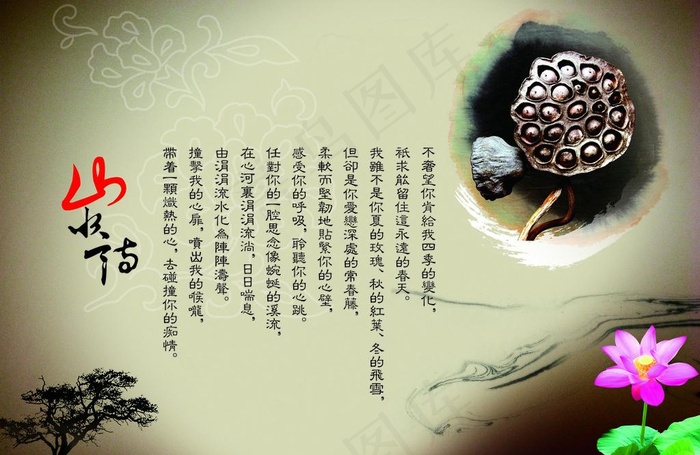 不奢望你肯給我四季的變化，
祇求能留住這永遠的春天。
我雖不是你夏的玫瑰、秋的紅葉、冬的飛雪，
但卻是你愛戀深處的常春藤，
柔軟而堅韌地貼緊你的心壁，
感受你的呼吸，聆聽你的心跳。
任對你的一腔思念像蜿蜒的溪流，
在心河裏涓涓流淌，日日喘息，
由涓涓流水化為陣陣濤聲。
撞擊我的心扉，噴出我的喉嚨，
帶着一顆熾熱的心，去碰撞你的痴情。
山水詩